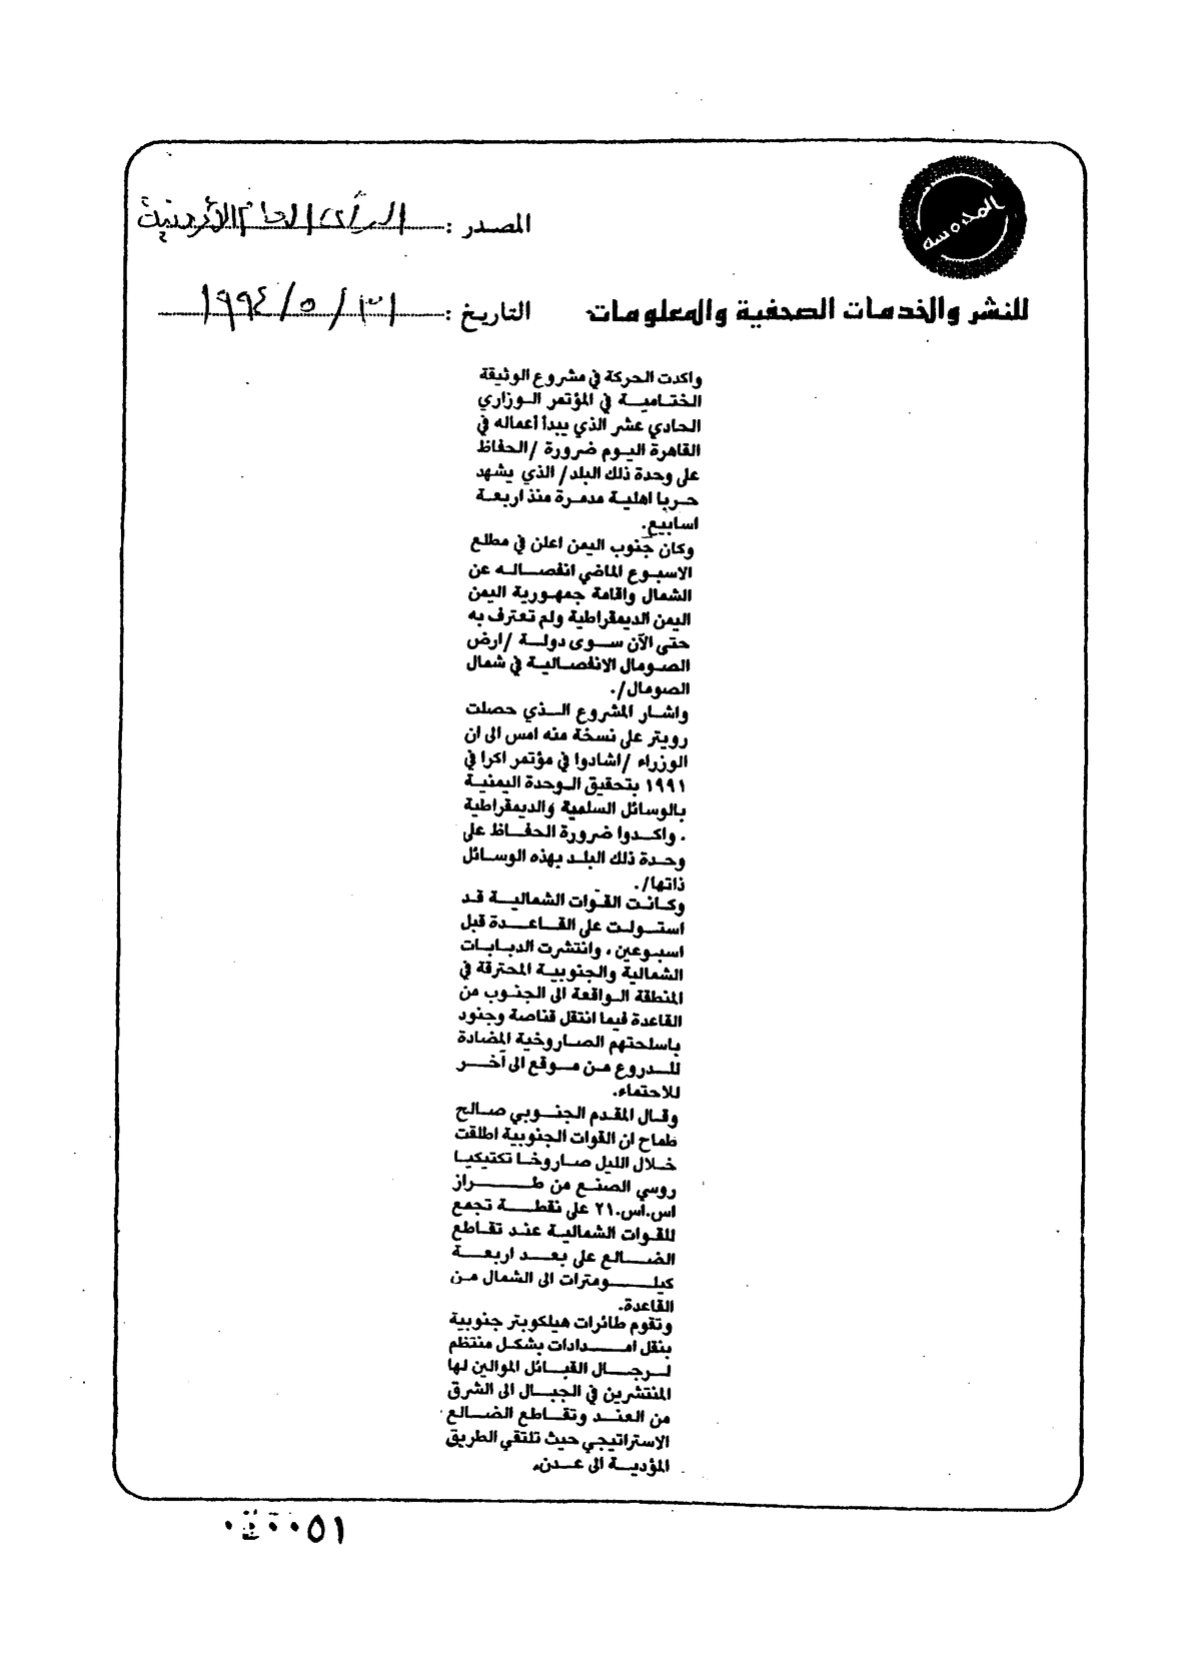 المدوسه
المصدر : الرأى العام الأردنية
للنشر والخدمات الصحفية والمعلومات
التاريخ : ٣١ / ٥ / ١٩٩٤
واكدت الحركة في مشروع الوثيقة
الختامية في المؤتمر الوزاري
الحادي عشر الذي يبدأ أعماله في
القاهرة اليوم ضرورة /الحفاظ
على وحدة ذلك البلد/ الذي يشهد
حربا اهلية مدمرة منذ اربعة
اسابيع.
وكان جنوب اليمن اعلن في مطلع
الاسبوع الماضي انفصاله عن
الشمال واقامة جمهورية اليمن
اليمن الديمقراطية ولم تعترف به
حتى الآن سوى دولة /ارض
الصومال الانفصالية في شمال
الصومال/.
واشار المشروع الذي حصلت
رويتر على نسخة منه امس الى ان
الوزراء /اشادوا في مؤتمر اكرا في
١٩٩١ بتحقيق الوحدة اليمنية
بالوسائل السلمية والديمقراطية
. واكدوا ضرورة الحفاظ على
وحدة ذلك البلد بهذه الوسائل
ذاتها/.
وكانت القوات الشمالية قد
استولت على القاعدة قبل
اسبوعين ، وانتشرت الدبابات
الشمالية والجنوبية المحترقة في
المنطقة الواقعة الى الجنوب من
القاعدة فيما انتقل قناصة وجنود
باسلحتهم الصاروخية المضادة
للدروع من موقع الى آخر
للاحتماء.
وقال المقدم الجنوبي صالح
طماح ان القوات الجنوبية اطلقت
خلال الليل صاروخا تكتيكيا
روسي الصنع من طراز
اس.اس.٢١ على نقطة تجمع
للقوات الشمالية عند تقاطع
الضالع على بعد اربعة
كيلومترات الى الشمال من
القاعدة.
وتقوم طائرات هيلكوبتر جنوبية
بنقل امدادات بشكل منتظم
لرجال القبائل الموالين لها
المنتشرين في الجبال الى الشرق
من العند وتقاطع الضالع
الاستراتيجي حيث تلتقي الطريق
المؤدية الى عدن.